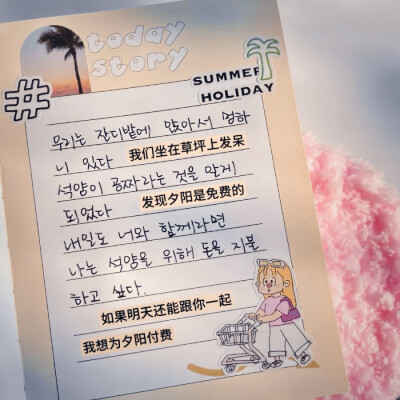 today
story
SUMMER
HOLIDAY
#
우리는 잔디밭에 앉아서 멍하
니 있다 我们坐在草坪上发呆
석양이 공짜라는 것을 알게
되었다 发现夕阳是免费的
내일도 너와 함께라면
나는 석양을 위해 돈을 지불
하고 싶다.
如果明天还能跟你一起
我想为夕阳付费